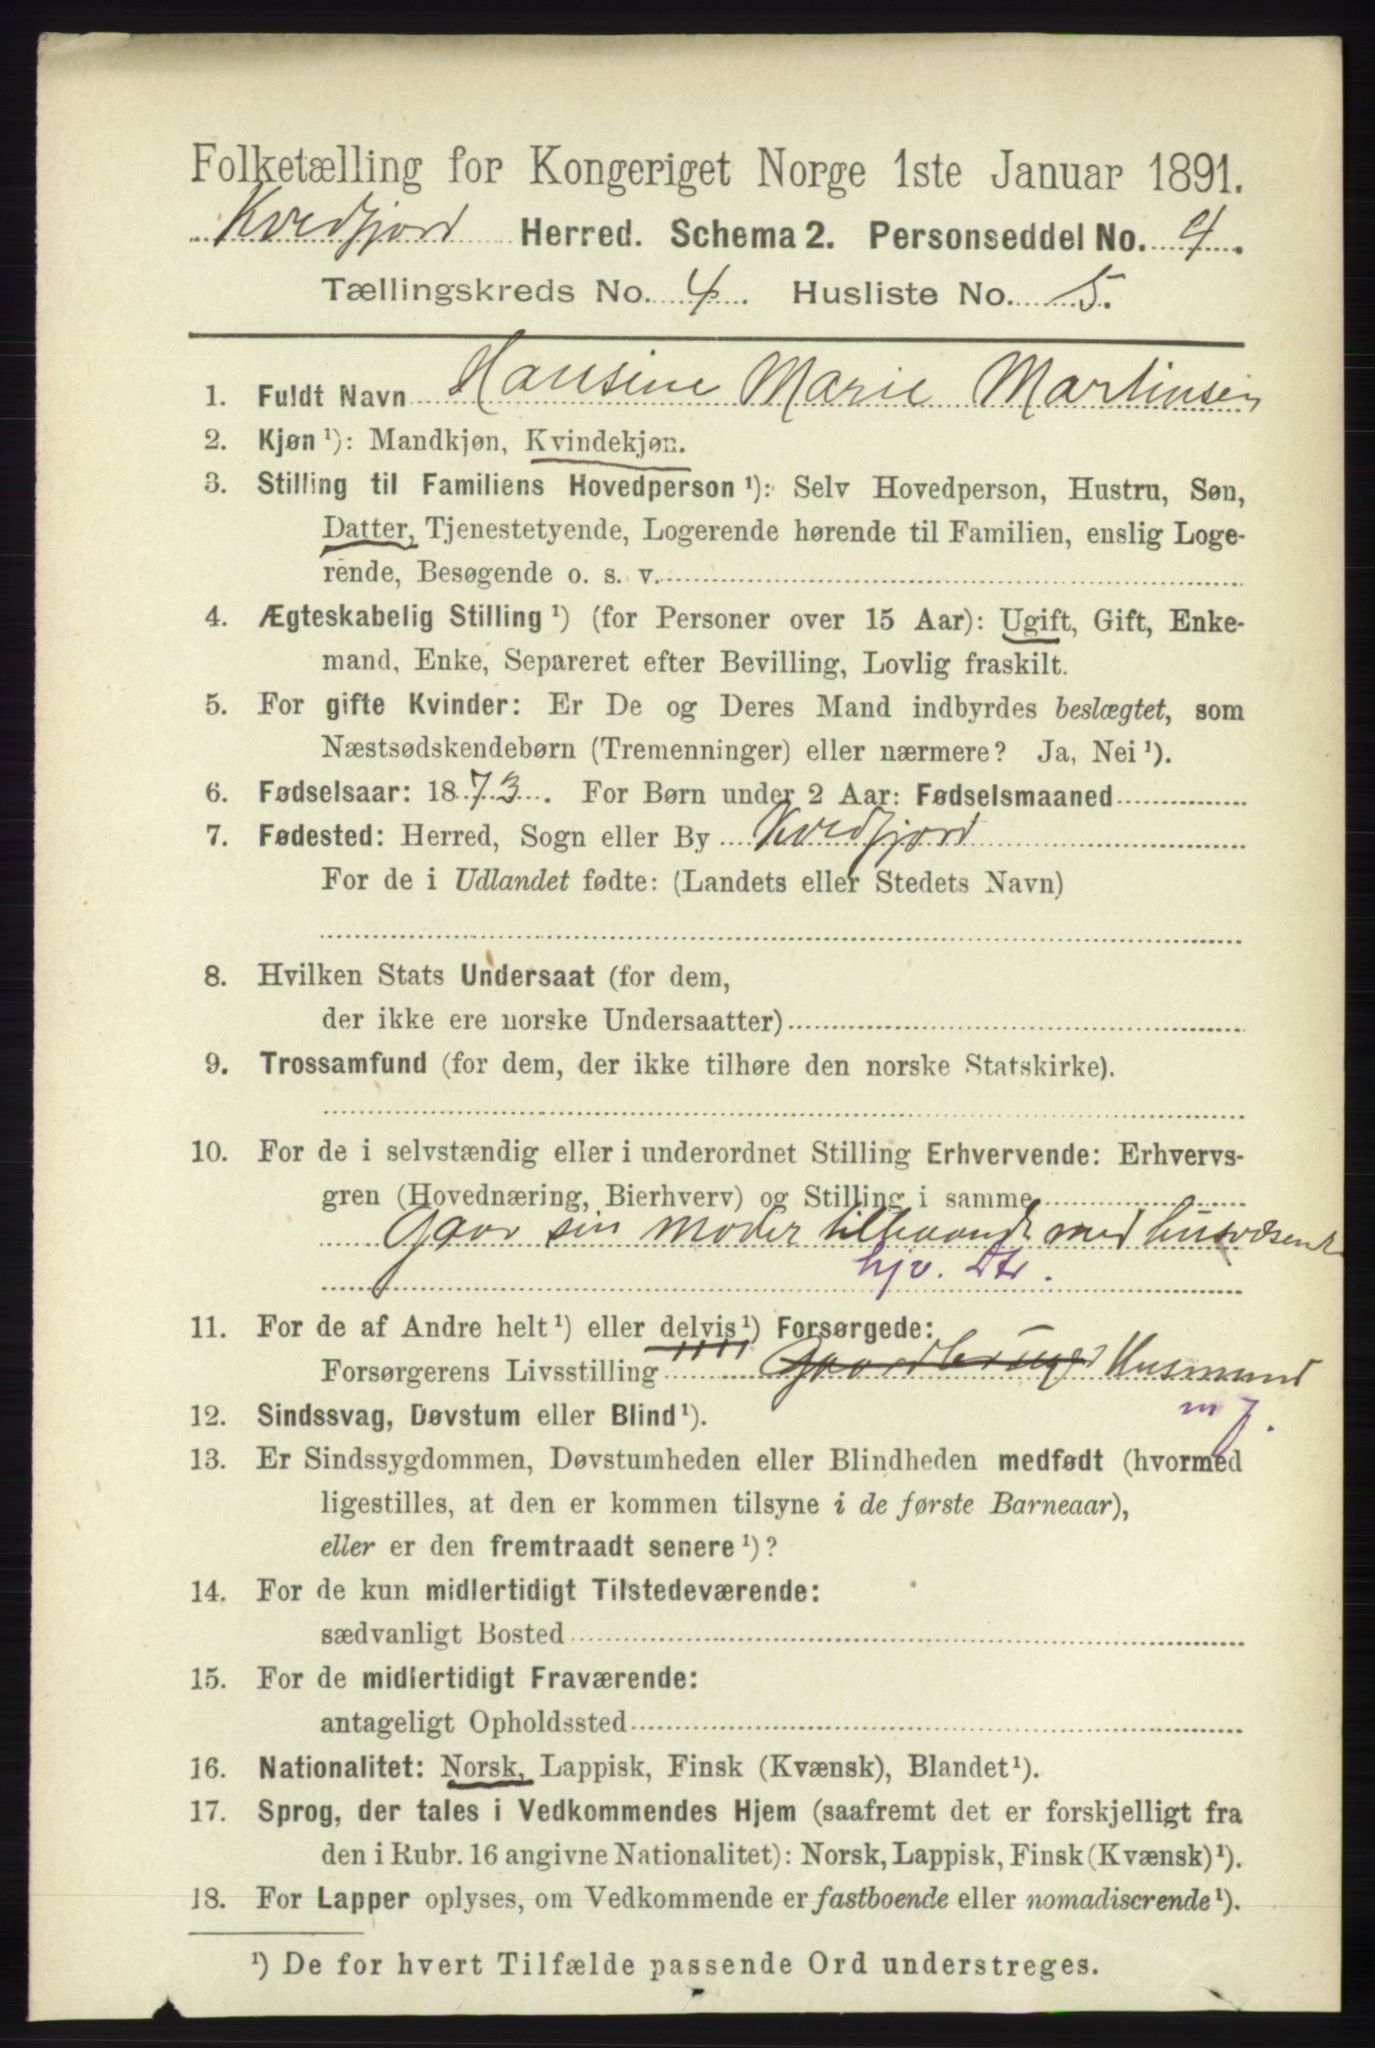 Folketælling for Kongeriget Norge 1ste Januar 1891.
Kvedfjord Herred. Schema 2. Personseddel No. 4.
Tællingskreds No. 4. Husliste No. 5.
1. Fuldt Navn Hansine Marie Martinsen
2. Kjøn ¹): Mandkjøn, Kvindekjøn.
3. Stilling til Familiens Hovedperson ¹): Selv Hovedperson, Hustru, Søn,
Datter, Tjenestetyende, Logerende hørende til Familien, enslig Loge-
rende, Besøgende o. s. v.
4. Ægteskabelig Stilling ¹) (for Personer over 15 Aar): Ugift, Gift, Enke-
mand, Enke, Separeret efter Bevilling, Lovlig fraskilt.
5. For gifte Kvinder: Er De og Deres Mand indbyrdes beslægtet, som
Næstsødskendebørn (Tremenninger) eller nærmere? Ja, Nei ¹).
6. Fødselsaar: 1873. For Børn under 2 Aar: Fødselsmaaned
7. Fødested: Herred, Sogn eller By Kvedfjord
For de i Udlandet fødte: (Landets eller Stedets Navn)
8. Hvilken Stats Undersaat (for dem,
der ikke ere norske Undersaatter)
9. Trossamfund (for dem, der ikke tilhøre den norske Statskirke).
10. For de i selvstændig eller i underordnet Stilling Erhvervende: Erhvervs-
gren (Hovednæring, Bierhverv) og Stilling i samme
Gaar sin moder tilhaande med husvæsent
hjv. Dtr.
11. For de af Andre helt ¹) eller delvis ¹) Forsørgede:
Forsørgerens Livsstilling Gaardbruger Husmand
m j.
12. Sindssvag, Døvstum eller Blind ¹).
13. Er Sindssygdommen, Døvstumheden eller Blindheden medfødt (hvormed
ligestilles, at den er kommen tilsyne i de første Barneaar),
eller er den fremtraadt senere ¹)?
14. For de kun midlertidigt Tilstedeværende:
sædvanligt Bosted
15. For de midlertidigt Fraværende:
antageligt Opholdssted
16. Nationalitet: Norsk, Lappisk, Finsk (Kvænsk), Blandet ¹).
17. Sprog, der tales i Vedkommendes Hjem (saafremt det er forskjelligt fra
den i Rubr. 16 angivne Nationalitet): Norsk, Lappisk, Finsk (Kvænsk) ¹).
18. For Lapper oplyses, om Vedkommende er fastboende eller nomadiserende ¹).
¹) De for hvert Tilfælde passende Ord understreges.